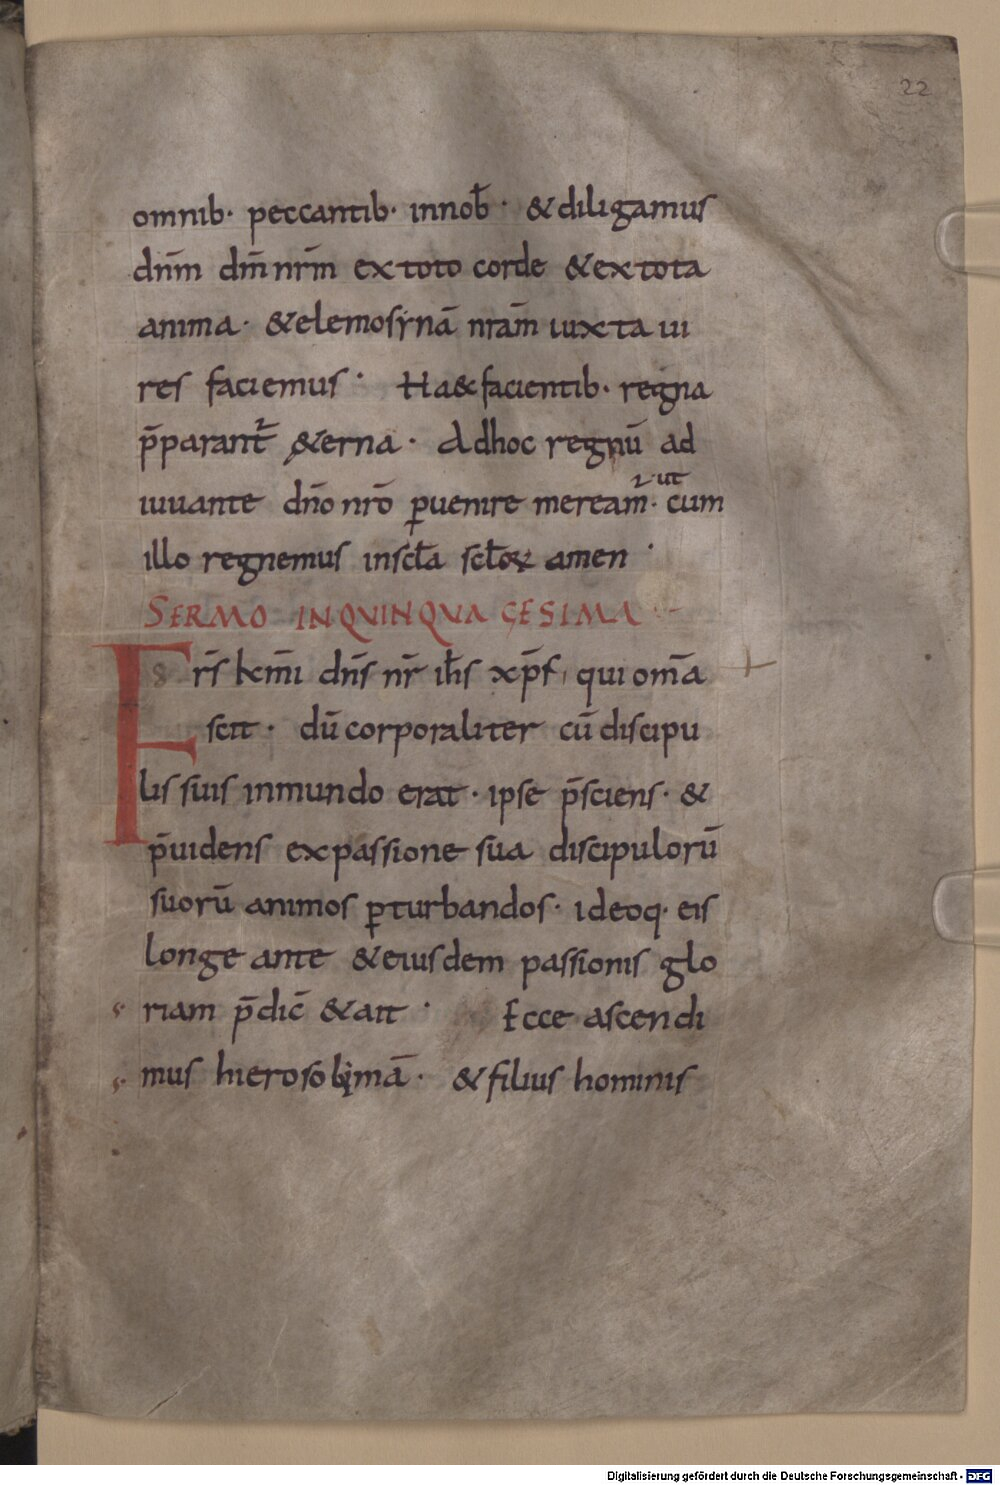 22
omnib· peccantib· innob̄· &diligamus
dn̄m dm̄ nr̄m extoto corde &extota
anima· &elemosynā nr̄am iuxta ui
res faciemus· Ha&facientib· regna
p̄parant̄ &erna· Adhoc regnū ad
ut
iuuante dn̄o nr̄o ꝑuenire meream̄· cum
illo regnemus inscl̄a scl̄oꝝ amen·
SERMO INQUINQUAGESIMA
Frs̄ km̄i dn̄s nr̄ ih̄s xp̄s, qui omā
scit· dū corporaliter cū discipu
lis suis inmundo erat· ipse p̄sciens· &
p̄uidens expassione sua discipulorū
suorū animos ꝑturbandos· ideoq· eis
longe ante &eiusdem passionis glo
riam p̄dic̄ &ait· Ecce ascendi
mus hierosolimā· &filius hominis
Digitalisierung gefördert durch die Deutsche Forschungsgemeinschaft - DFG